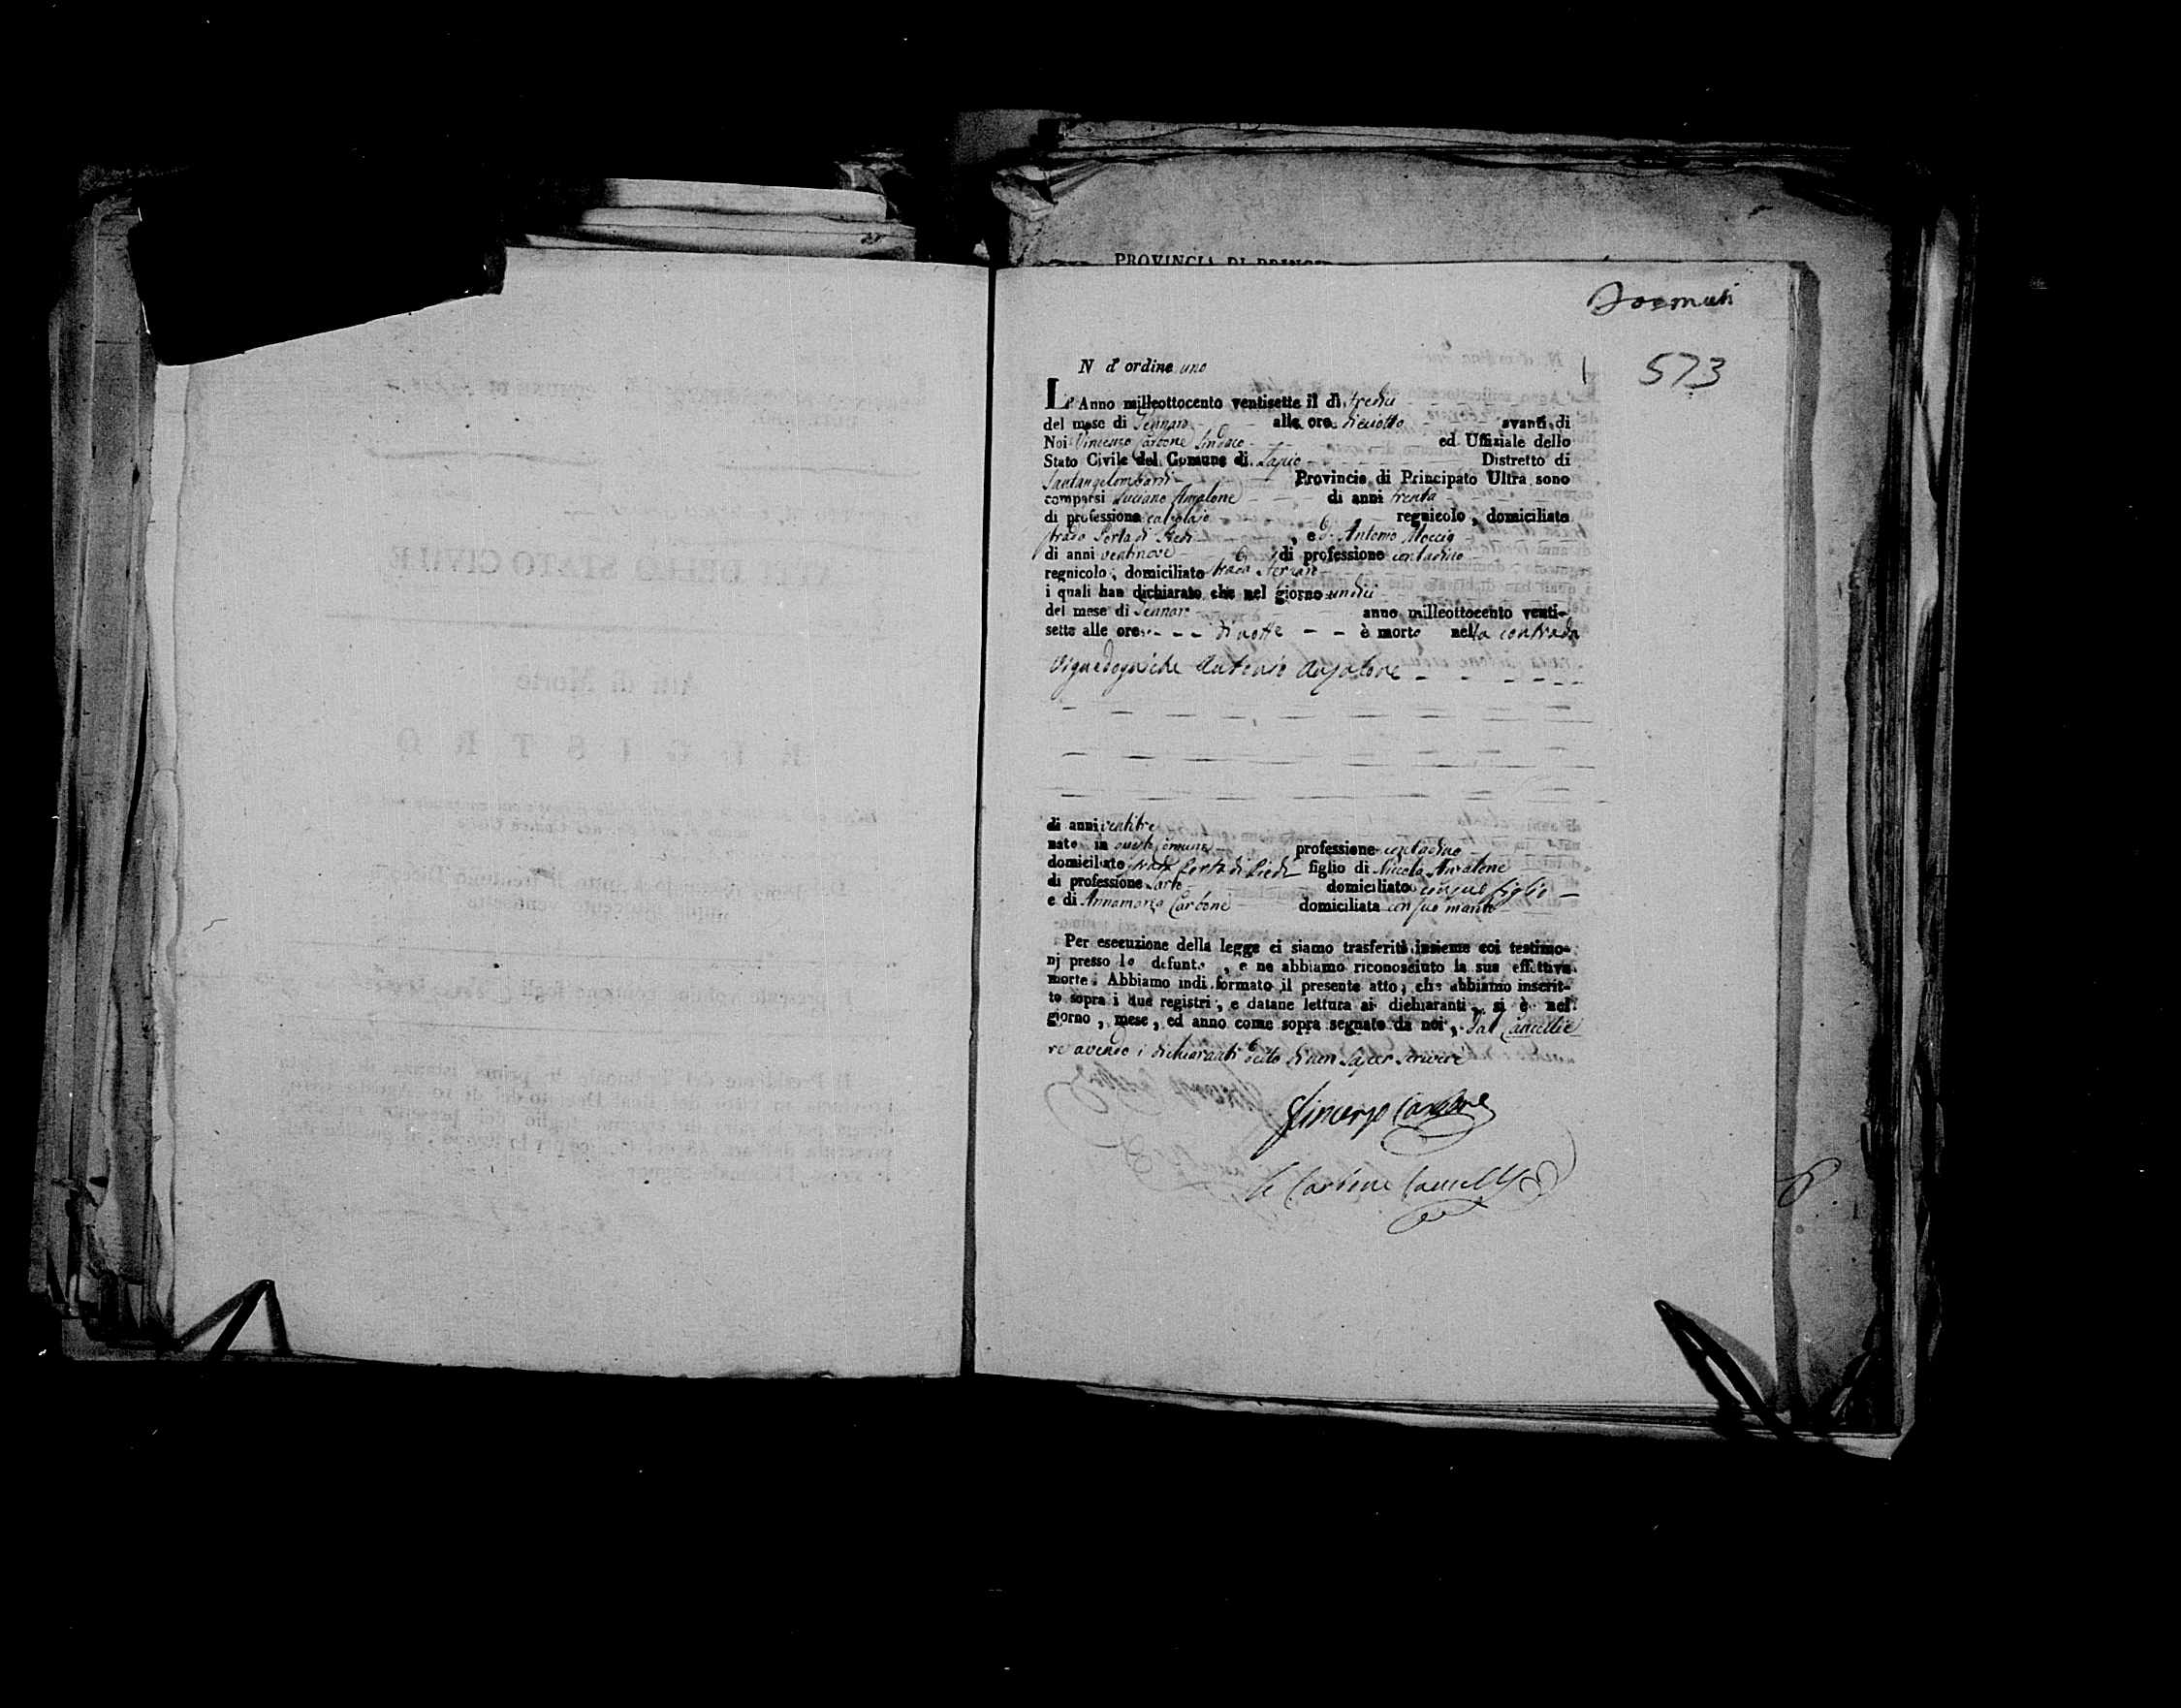 PROVINCIA DI PRINCI
573
1
N d'ordine uno
L' Anno milleottocento ventisette il di tredici
del mese di Gennaro alle ore dieciotto avanti di
Noi Vincenzo Carbone Sindaco ed Uffiziale dello
Stato Civile del Comune di Lapio Distretto di
Santangelombardi Provincia di Principato Ultra sono
comparsi Luciano Anzalone di anni trenta
di professione calzolajo regnicolo, domiciliato
strada Porta di Piedi, e d. Antonio Moccia
di anni ventinove di professione contadino
regnicolo, domiciliato strada
i quali han dichiarato che nel giorno undici
del mese di Gennaro anno milleottocento venti-
sette alle ore di notte è morto nella contrada
Antonio Anzalone
di anni ventitre
nato in questo comune professione contadino
domiciliato strada Porta di Piedi figlio di Niccola Anzalone
di professione sarto domiciliato con suo figlio
e di Annamaria Carbone domiciliata con suo marito
Per esecuzione della legge ci siamo trasferiti insieme coi testimo-
nj presso lo defunto, e ne abbiamo riconosciuto la sua effettiva
morte. Abbiamo indi formato il presente atto, che abbiamo inserit-
to sopra i due registri, e datane lettura ai dichiaranti, si è nel
giorno, mese, ed anno come sopra segnato da noi, dal Cancellie
re avendo i dichiaranti detto di non saper scrivere
Vincenzo Carbone
Carbone Cancell